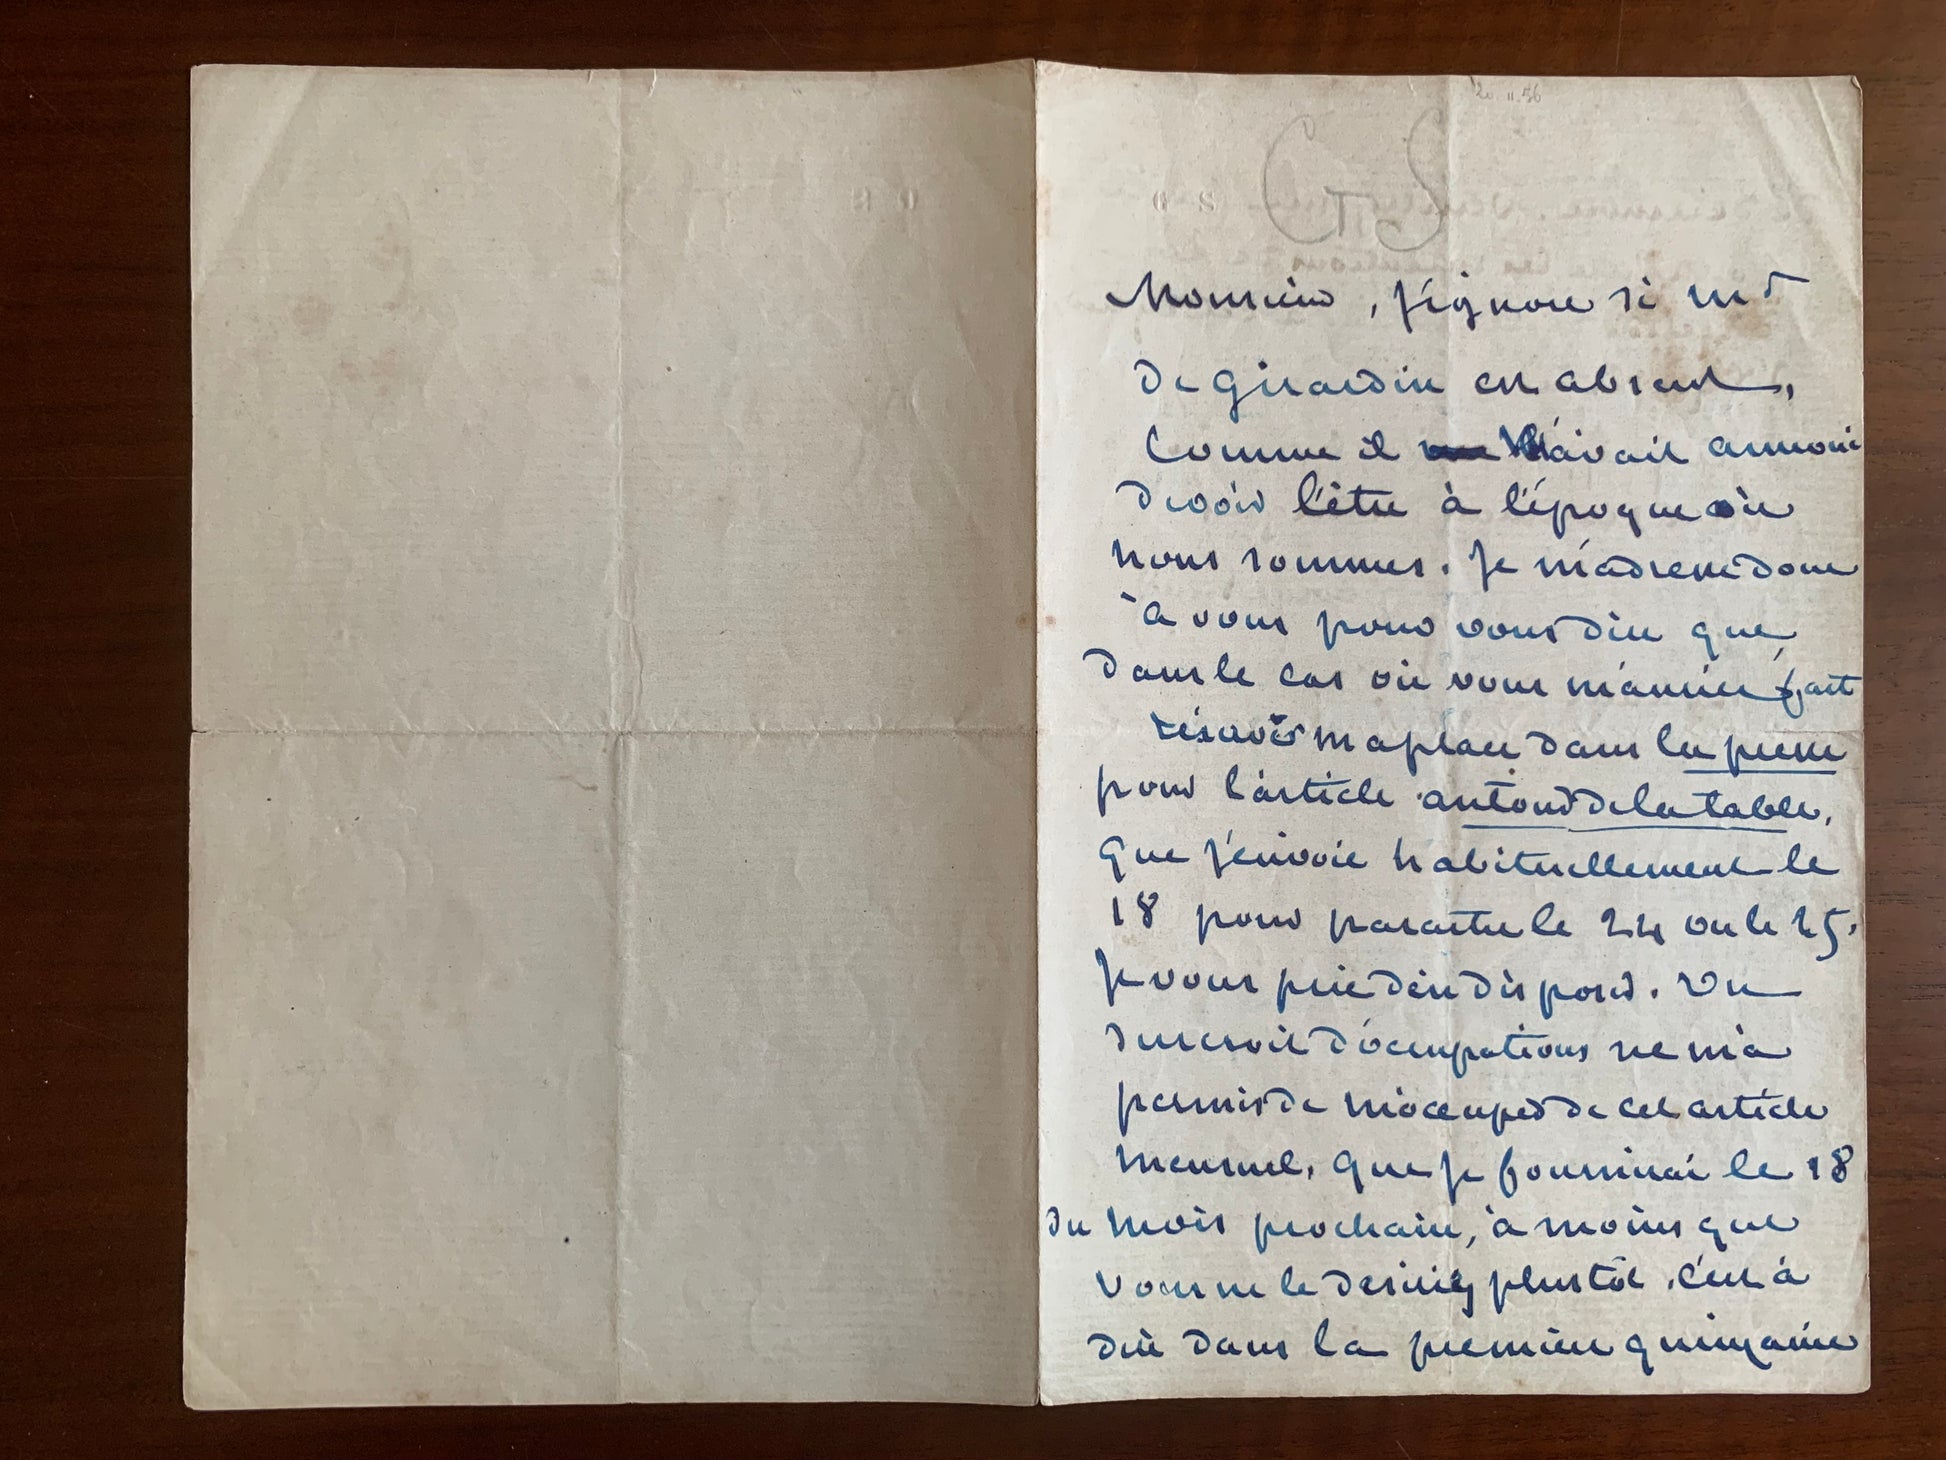 20.11.56
GS
G S
Monsieur, j'ignore si Mr
de Girardin est absent,
comme il m'avait annoncé
devoir l'être à l'époque où
nous sommes. Je m'adresse donc
à vous pour vous dire que,
dans le cas où vous m'auriez fait
réserver ma place dans la presse
pour l'article autour de la table,
que j'envoie habituellement le
18 pour paraître le 24 ou le 25.
Je vous prie d'en disposer. Un
surcroît d'occupations ne m'a
permis de m'occuper de cet article
mensuel, que je fournirai le 18
du mois prochain, à moins que
vous ne le desiriez plustôt, c'est à
dire dans la première quinzaine